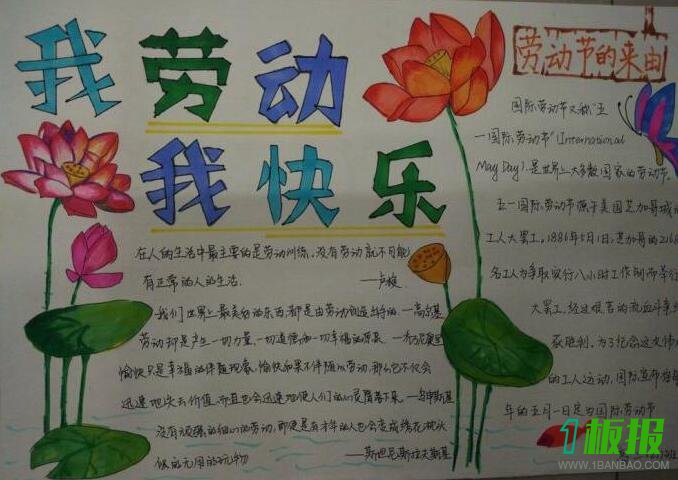 我劳动
我快乐
在人的生活中最主要的是劳动训练。没有劳动就不可能
有正常的人的生活。 ——卢梭
我们世界上最美好的东西都是由劳动创造出来的 —高尔基
劳动却是产生一切力量、一切道德和一切幸福的
愉快只是幸福的伴随现象，愉快如果不伴随以劳动，那么它不仅会
迅速地失去价值，而且也会迅速地使人们的心灵
没有顽强的细心的劳动，即使是有才华的人也会变成绣花枕头
似的无用的玩物 —斯坦尼斯拉夫斯基
劳动节的来由
国际劳动节又称“五
一国际劳动节”(International
May Day)，是世界上大多数国家的劳动节。
五一国际劳动节源于美国芝加哥城的
工人大罢工。1886年5月1日，芝加哥的216
名工人为争取实行八小时工作制而举行
大罢工，经过艰苦的流血斗争
获胜利。为了纪念这次伟
的工人运动，国际宣布
年的五月一日定为国际劳动节
1板报
WWW.1BANBAO.COM